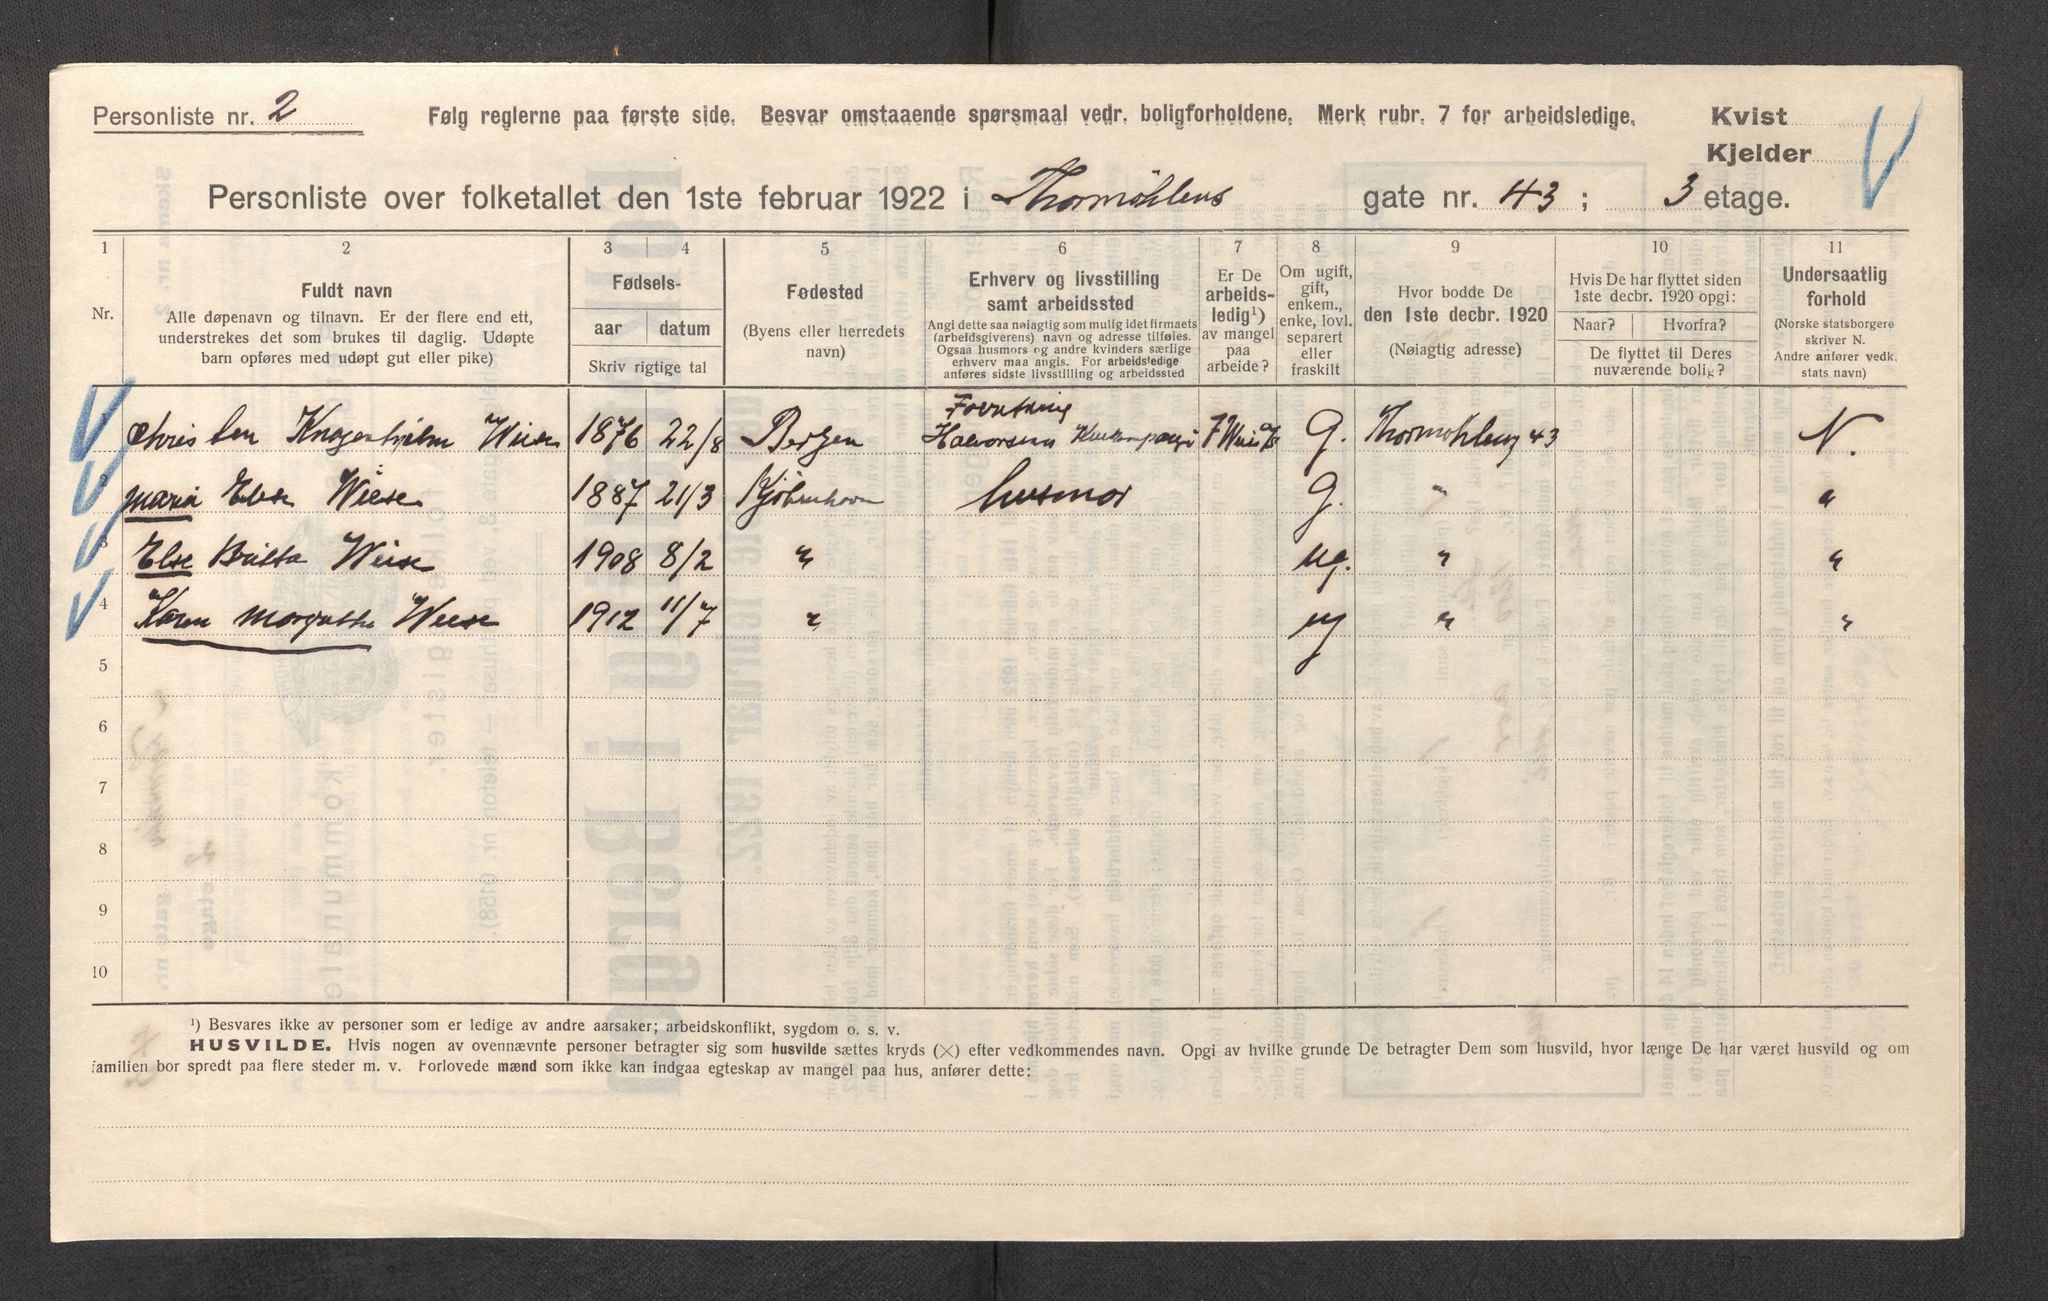 Personliste nr. 2 Følg reglerne paa første side. Besvar omstaaende spørsmaal vedr. boligforholdene. Merk rubr. 7 for arbeidsledige. Kvist
Kjelder
Personliste over folketallet den 1ste februar 1922 i Thormøhlens gate nr. 43; 3 etage.
1 2 3 4 5 6 7 8 9 10 11
Nr.
Fuldt navn
Alle døpenavn og tilnavn. Er der flere end ett,
understrekes det som brukes til daglig. Udøpte
barn opføres med udøpt gut eller pike)
Fødsels-
aar datum
Skriv rigtige tal
Fødested
(Byens eller herredets
navn)
Erhverv og livsstilling
samt arbeidssted
Angi dette saa nøiagtig som mulig idet firmaets
(arbeidsgiverens) navn og adresse tilføies.
Ogsaa husmors og andre kvinders særlige
erhverv maa angis. For arbeidsledige
anføres sidste livsstilling og arbeidssted
Er De
arbeids-
ledig¹)
av mangel
paa
arbeide?
Om ugift,
gift,
enkem.,
enke, lovl.
separert
eller
fraskilt
Hvor bodde De
den 1ste decbr. 1920
(Nøiagtig adresse)
Hvis De har flyttet siden
1ste decbr. 1920 opgi:
Naar? Hvorfra?
De flyttet til Deres
nuværende bolig?
Undersaatlig
forhold
(Norske statsborgere
skriver N.
Andre anfører vedk.
stats navn)
1876 22/8 Bergen Halvorsens G. Thormøhlens 43 N.
2 Maria Else Wiese 1887 21/3 Kjøbenhavn husmor G. " "
3 Else Britta Wiese 1908 8/2 " ug. " "
4 Karen Margrethe Wiese 1912 11/7 " ug " "
5
6
7
8
9
10
¹) Besvares ikke av personer som er ledige av andre aarsaker; arbeidskonflikt, sygdom o. s. v.
HUSVILDE. Hvis nogen av ovennævnte personer betragter sig som husvilde sættes kryds (×) efter vedkommendes navn. Opgi av hvilke grunde De betragter Dem som husvild, hvor længe De har været husvild og om
familien bor spredt paa flere steder m. v. Forlovede mænd som ikke kan indgaa egteskap av mangel paa hus, anfører dette: